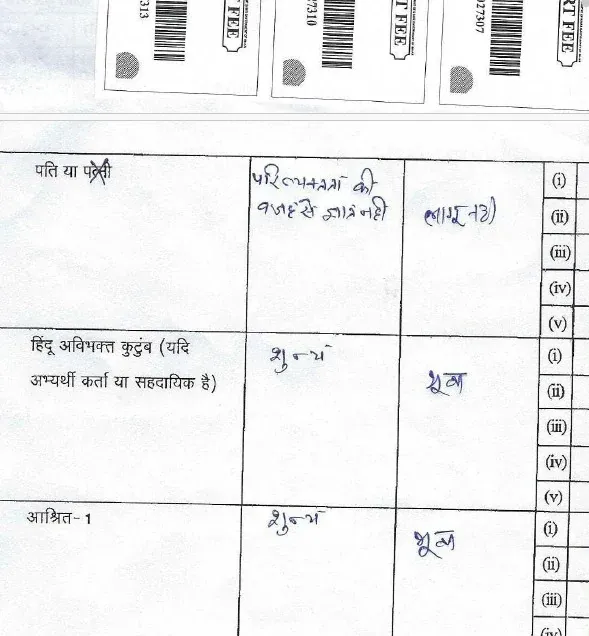 27313
RT FEE
27310
RT FEE
27307
RT FEE
पति या
परित्यक्तता की
वजह से ज्ञात नही
लागू नही
(i)
(ii)
(iii)
(iv)
(v)
हिंदू अविभक्त कुटुंब (यदि
अभ्यर्थी कर्ता या सहदायिक है)
शुन्य
(i)
(ii)
(iii)
(iv)
(v)
आश्रित- 1
शुन्य
(i)
(ii)
(iii)
(iv)